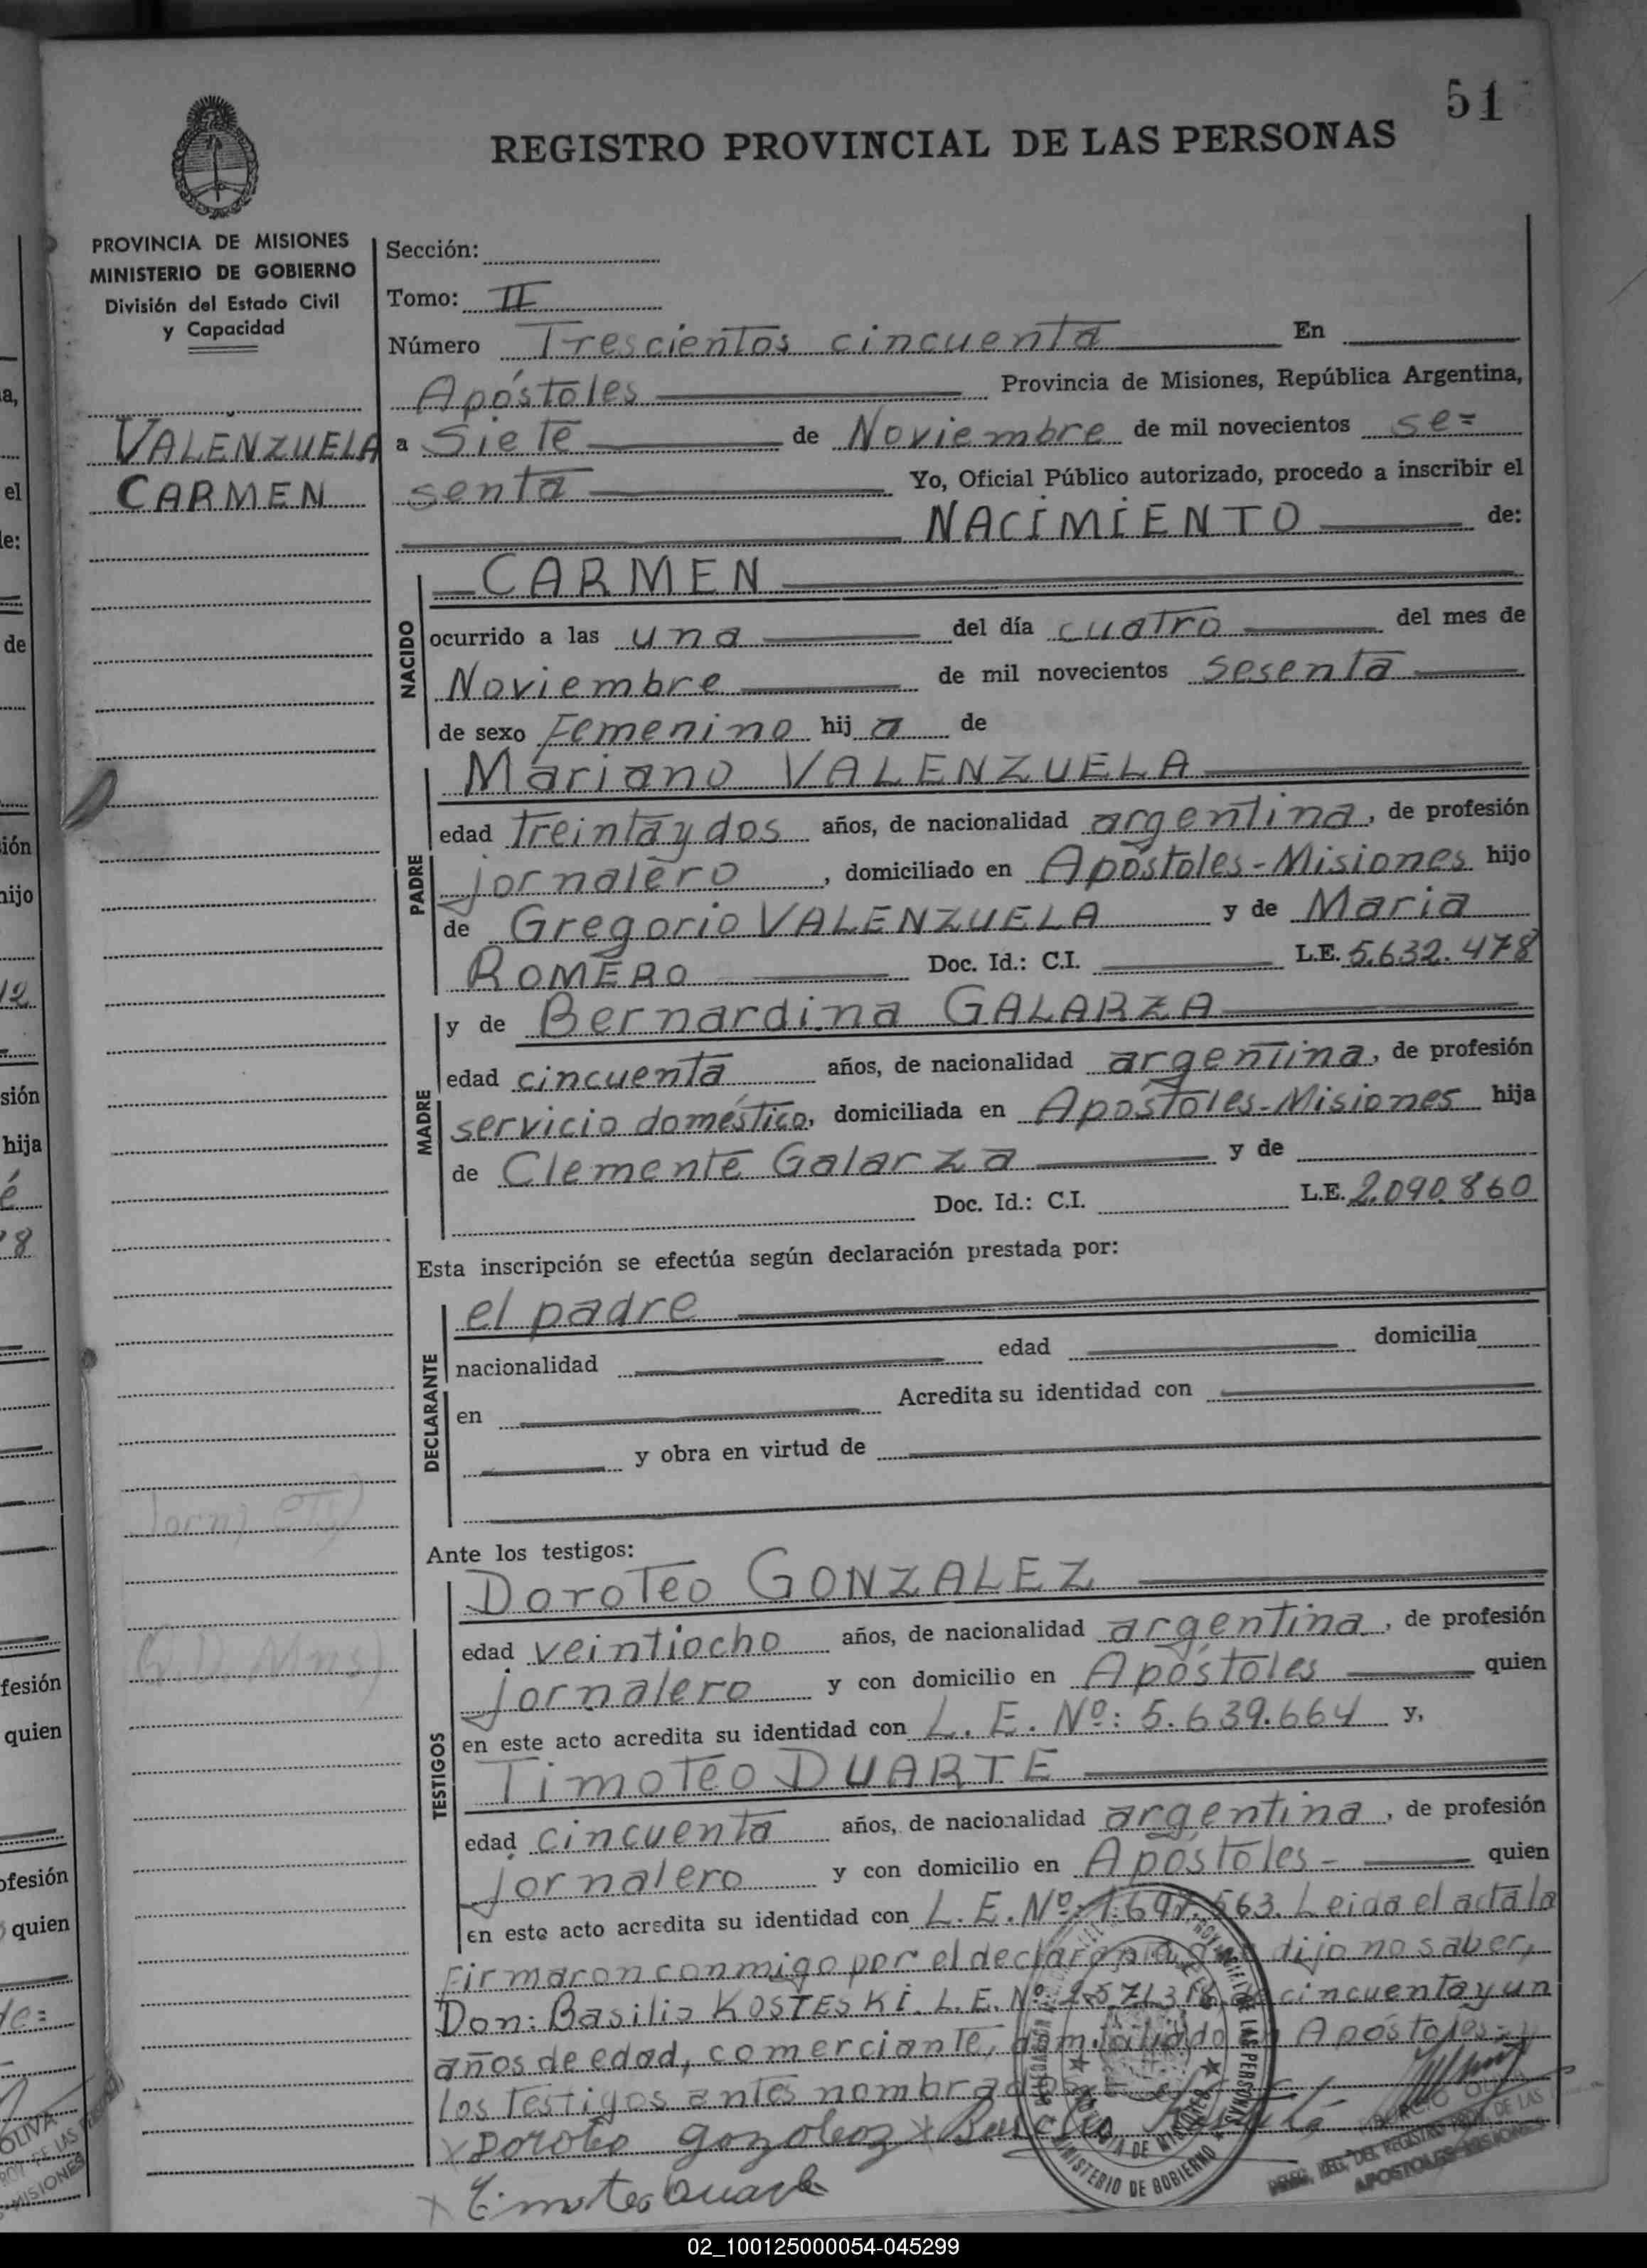 51
REGISTRO PROVINCIAL DE LAS PERSONAS
PROVINCIA DE MISIONES
MINISTERIO DE GOBIERNO
División del Estado Civil
y Capacidad
VALENZUELA
CARMEN
Sección:
Tomo: II
Número Trescientos cincuenta En
Apóstoles Provincia de Misiones, República Argentina,
a Siete de Noviembre de mil novecientos se=
senta Yo, Oficial Público autorizado, procedo a inscribir el
NACIMIENTO de:
NACIDO
CARMEN
ocurrido a las una del día cuatro del mes de
Noviembre de mil novecientos sesenta
de sexo Femenino hij a de
PADRE
Mariano VALENZUELA
edad treinta y dos años, de nacionalidad argentina, de profesión
jornalero, domiciliado en Apóstoles-Misiones hijo
de Gregorio VALENZUELA y de Maria
ROMERO Doc. Id.: C.I. L.E. 5.632.478
MADRE
y de Bernardina GALARZA
edad cincuenta años, de nacionalidad argentina, de profesión
servicio doméstico, domiciliada en Apóstoles-Misiones hija
de Clemente Galarza y de
Doc. Id.: C.I. L.E. 2.090.860
Esta inscripción se efectúa según declaración prestada por:
DECLARANTE
el padre
nacionalidad edad domicilia
en Acredita su identidad con
y obra en virtud de
Ante los testigos:
TESTIGOS
Doroteo GONZALEZ
edad veintiocho años, de nacionalidad argentina, de profesión
jornalero y con domicilio en Apóstoles quien
en este acto acredita su identidad con L. E. Nº: 5.639.664 y,
Timoteo DUARTE
edad cincuenta años, de nacionalidad argentina, de profesión
jornalero y con domicilio en Apóstoles- quien
en este acto acredita su identidad con L. E. Nº: Leida el acta la
Firmaron conmigo por el dijo no saber,
Don: Basilio KOSTESKI. L. E. Nº cincuenta y un
años de edad, comerciante, Apóstoles=
los testigos antes
x Doroteo gozoleoz x
x Timoteo Duarte
MINISTERIO DE GOBIERNO
APOSTOLES MISIONES
02_100125000054-045299